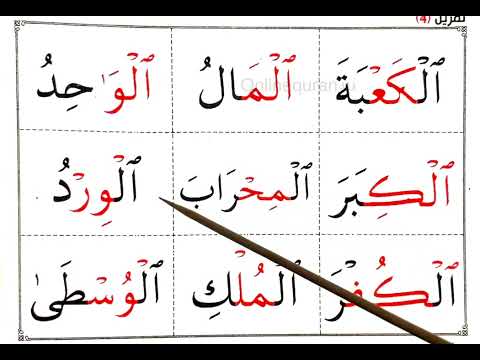 تمرين (4)
ٱلْكَعْبَةَ ٱلْمَالُ ٱلْوَٰحِدُ
ٱلْكِبَرَ ٱلْمِحْرَابَ ٱلْوِرْدُ
ٱلْكُفْرَ ٱلْمُلْكِ ٱلْوُسْطَىٰ